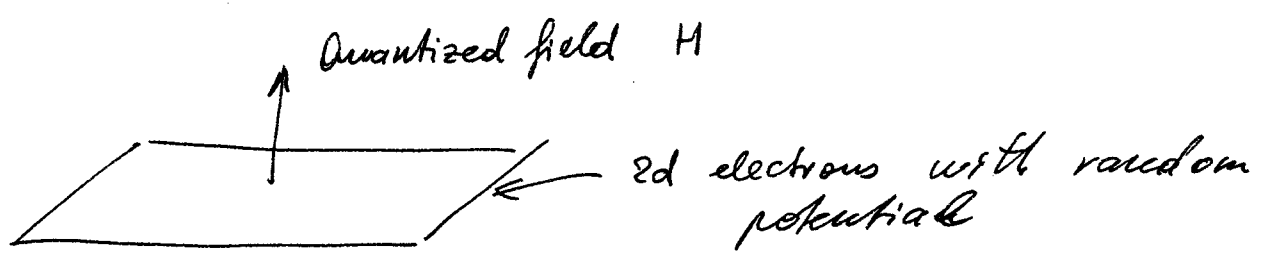 Quantized field H
2d electrons with random
potential